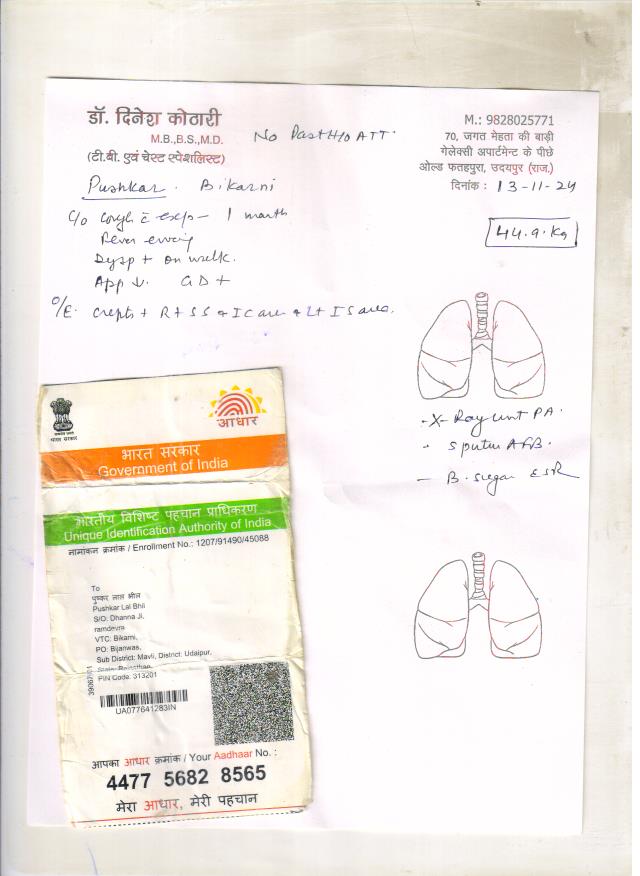 डॉ. दिनेश कोठारी
M.B.,B.S.,M.D.
(टी.बी. एवं चेस्ट स्पेशलिस्ट)
No Past H/o ATT.
M.: 9828025771
70, जगत मेहता की बाड़ी
गेलेक्सी अपार्टमेन्ट के पीछे
ओल्ड फतहपुरा, उदयपुर (राज.)
दिनांक : 13-11-24
Pushkar. Bikarni
44.9. Kg
C/o Cough c exp- 1 month
Fever evening
Dysp + on walk.
App ↓. GD +
O/E. crepts + R + SS & IC area & L + IS area.
- X-Ray chest PA.
- Sputum AFB.
- B. Sugar ESR
भारत सरकार
आधार
भारत सरकार
Government of India
भारतीय विशिष्ट पहचान प्राधिकरण
Unique Identification Authority of India
नामांकन क्रमांक / Enrollment No.: 1207/91490/45088
To
पुष्कर लाल भील
Pushkar Lal Bhil
S/O: Dhanna Ji,
ramdevra
VTC: Bikarni,
PO: Bijanwas,
Sub District: Mavli, District: Udaipur,
State: Rajasthan,
PIN Code: 313201
UA077641283IN
आपका आधार क्रमांक / Your Aadhaar No. :
4477 5682 8565
मेरा आधार, मेरी पहचान